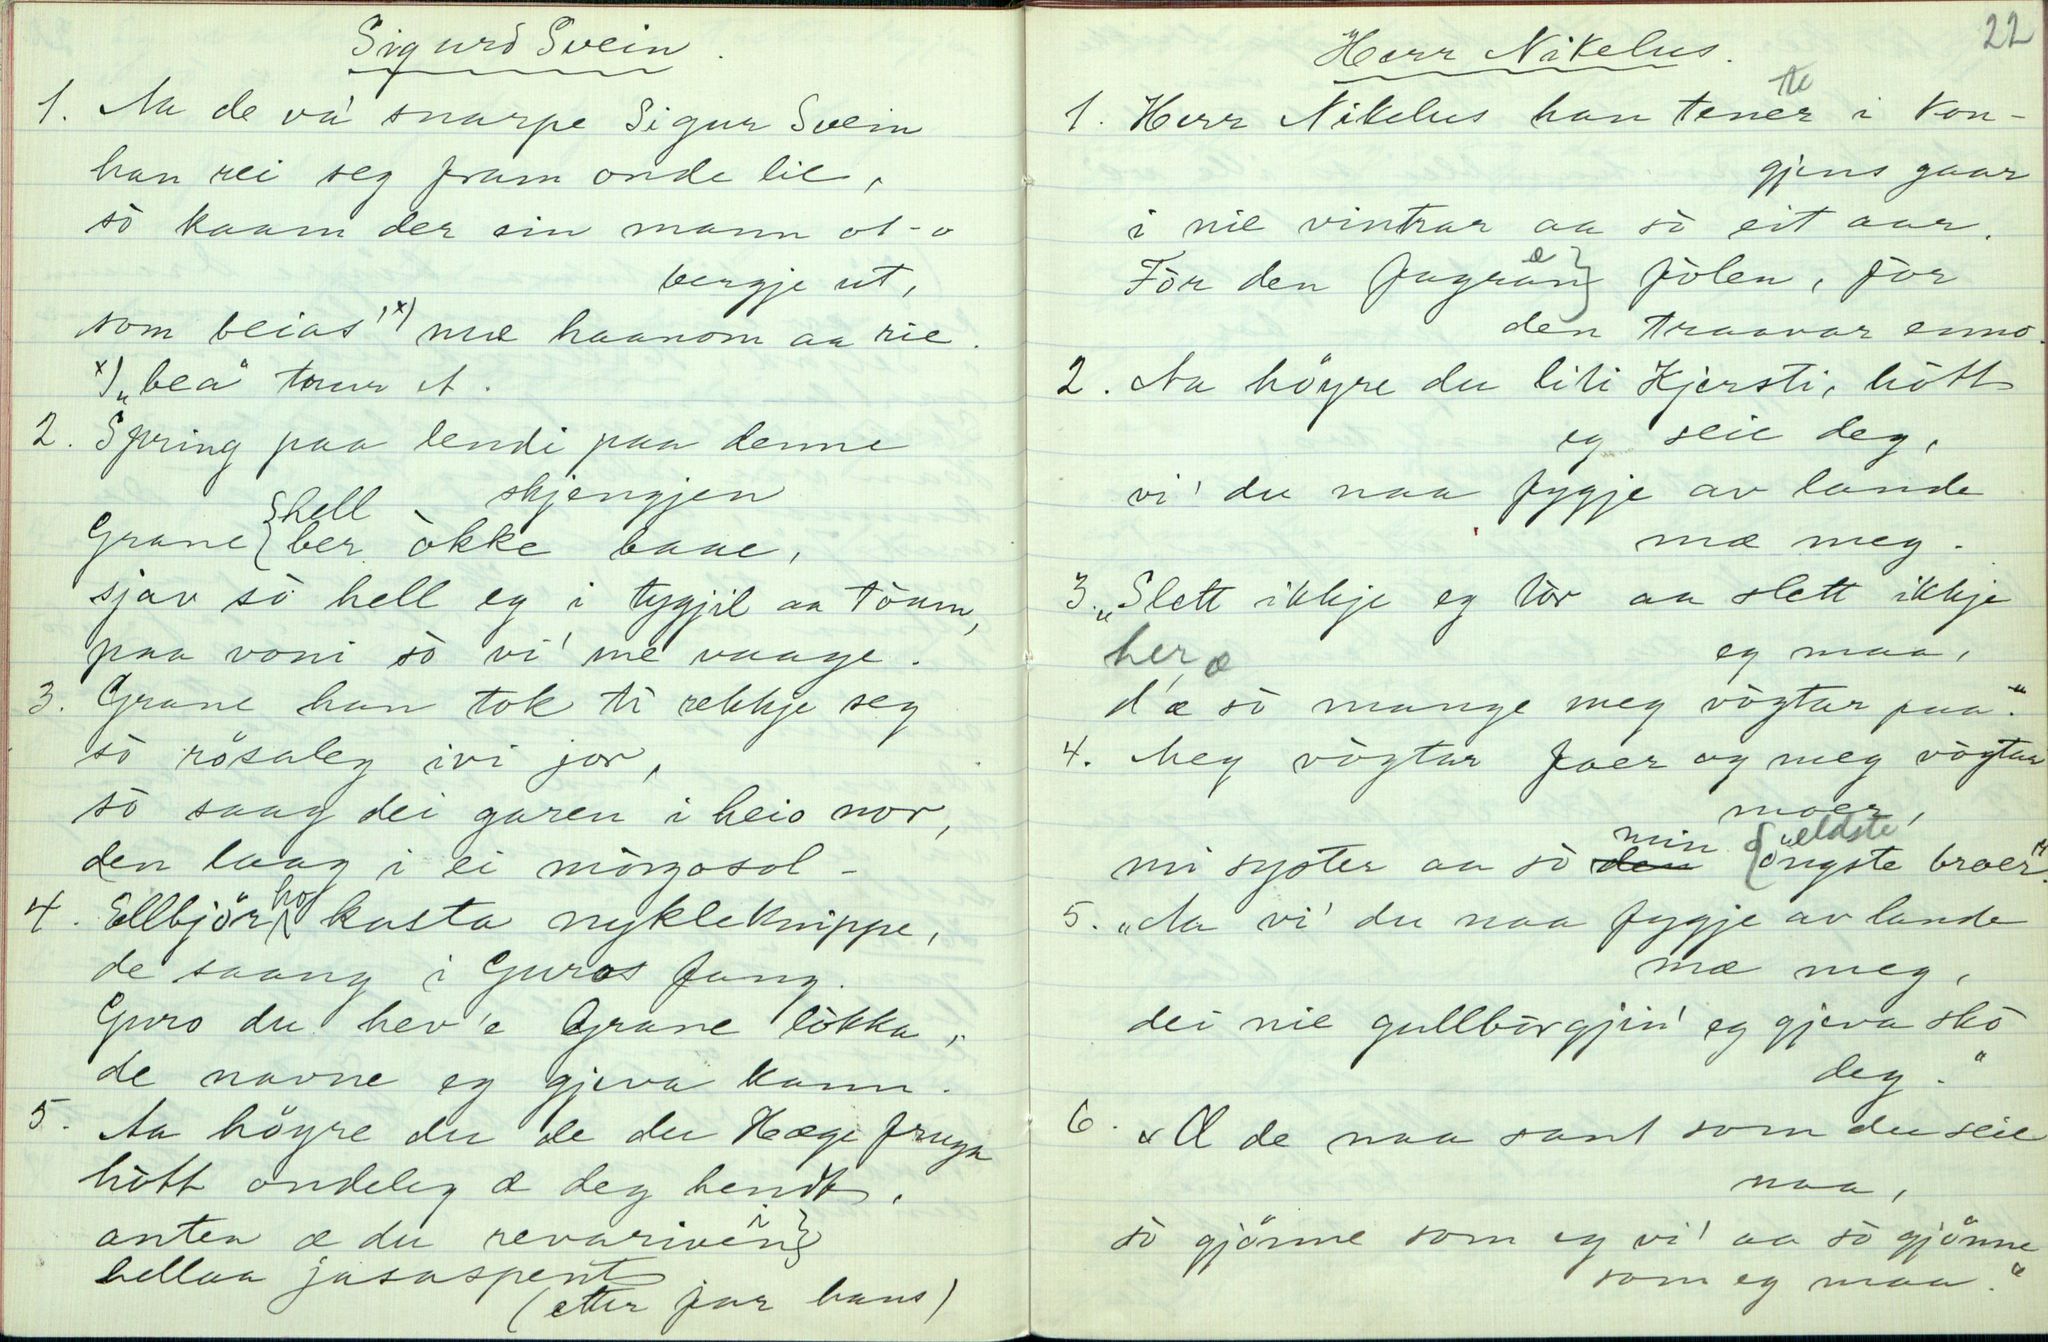 Sigurd Svein.
1. Aa de va' snarpe Sigur Svein
han rei seg fram onde lie,
sò kaam der ein mann ot-o
bergje ut,
som beias'x) mæ haanom aa rie.
x) „bea" trur A.
2. Spring paa lendi paa denne
skjengjen
Grane {hell
{ber òkke baae,
sjav sò hell eg i tygjil aa tòum,
paa voni sò vi' me vaage.
3. Grane han tok ti rekkje seg
sò rösaleg ivi jor,
sò saag dei garen i heio nor,
den laag i ei mòrgosol -
4. Ellbjör ho kasta nykleknippe,
de saang i Guros fang.
Guro du hev'e Grane lòkka,
de navne eg gjeva kann.
5. Aa höyre du de du Hægefruga
hòtt ondeleg æ deg hendt,
anten æ du revarivên}i
hellaa jasaspent
(etter far hans)
22
Herr Nikelus.
1. Herr Nikelus han tener te i kon-
gjens gaar
i nie vintrar aa sò eit aar.
För den fagran}e fòlen, fòr
den traavar ennò.
2. Aa höyre du liti Kjersti, hòtt
eg seie deg,
vi' du naa fygje av lande
mæ meg.
3. „Slett ikkje eg tòr aa slett ikkje
eg maa,
her æ
d'æ sò mange meg vògtar paa."
4. Meg vògtar faer og meg vògtar
moer,
mi syster aa sò den min {eldste
ongste broer."
5. „Aa vi' du naa fygje av lande
mæ meg,
dei nie gullbòrgjin' eg gjeva skò
deg."
6. „Æ de naa sant som du seie
naa,
sò gjönne som eg vi' aa sò gjönne
som eg maa."